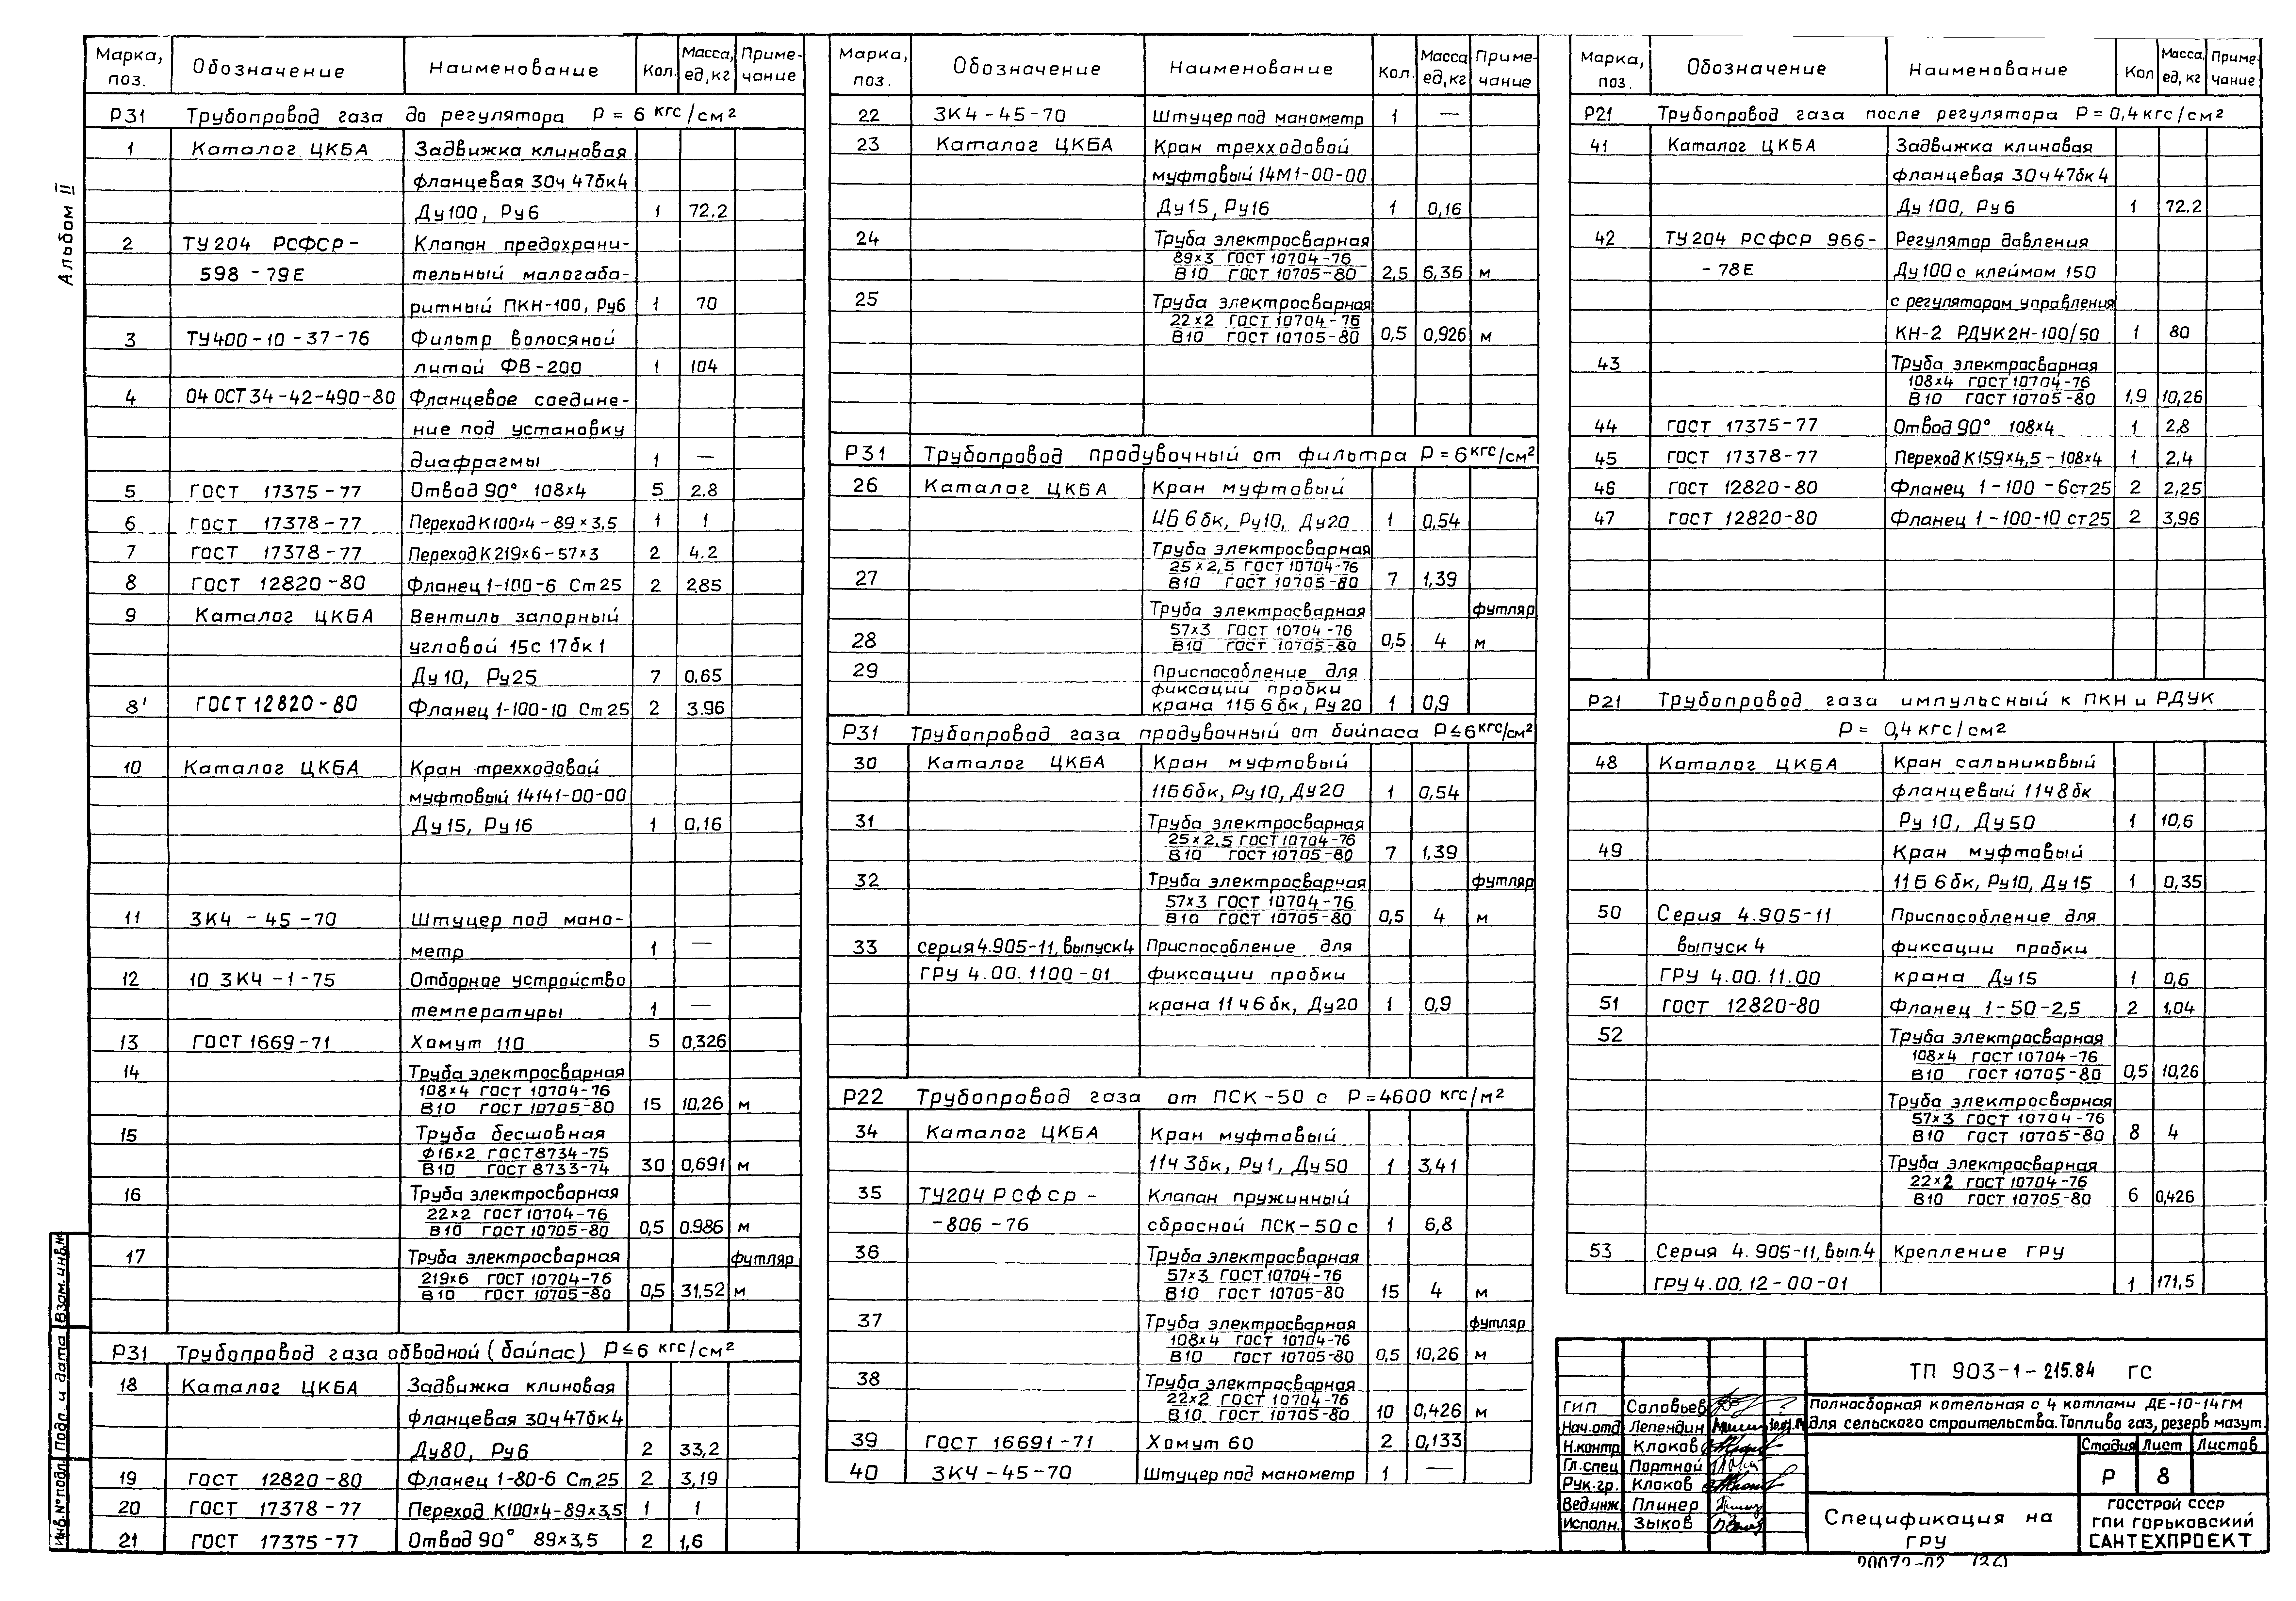 Альбом II
Марка, поз. Обозначение Наименование Кол. Масса, ед, кг Приме- чание
Р31 Трубопровод газа до регулятора Р = 6 кгс/см²
1 Каталог ЦКБА Задвижка клиновая
фланцевая 30ч 47бк4
Ду100, Ру6 1 72.2
2 ТУ204 РСФСР - Клапан предохрани-
598 - 79Е тельный малогаба-
ритный ПКН-100, Ру6 1 70
3 ТУ400-10-37-76 Фильтр волосяной
литой ФВ-200 1 104
4 04 ОСТ 34-42-490-80 Фланцевое соедине-
ние под установку
диафрагмы 1 —
5 ГОСТ 17375-77 Отвод 90° 108х4 5 2.8
6 ГОСТ 17378-77 Переход К100х4-89х3,5 1 1
7 ГОСТ 17378-77 Переход К219х6-57х3 2 4.2
8 ГОСТ 12820-80 Фланец 1-100-6 Ст25 2 2.85
9 Каталог ЦКБА Вентиль запорный
угловой 15с 17бк1
Ду10, Ру25 7 0,65
8' ГОСТ 12820-80 Фланец 1-100-10 Ст25 2 3.96
10 Каталог ЦКБА Кран трехходовой
муфтовый 14141-00-00
Ду15, Ру16 1 0,16
11 ЗК4-45-70 Штуцер под мано-
метр 1 —
12 10 ЗК4-1-75 Отборное устройство
температуры 1 —
13 ГОСТ 1669-71 Хомут 110 5 0,326
14 Труба электросварная
108х4 ГОСТ 10704-76
В10 ГОСТ 10705-80 15 10,26 м
15 Труба бесшовная
ф16х2 ГОСТ8734-75
В10 ГОСТ 8733-74 30 0,691 м
16 Труба электросварная
22х2 ГОСТ 10704-76
В10 ГОСТ 10705-80 0,5 0.986 м
17 Труба электросварная футляр
219х6 ГОСТ 10704-76
В10 ГОСТ 10705-80 0,5 31,52 м
Р31 Трубопровод газа обводной (байпас) Р≤6 кгс/см²
18 Каталог ЦКБА Задвижка клиновая
Фланцевая 30ч47бк4
Ду80, Ру6 2 33,2
19 ГОСТ 12820-80 Фланец 1-80-6 Ст.25 2 3,19
20 ГОСТ 17378-77 Переход К100х4-89х3,5 1 1
21 ГОСТ 17375-77 Отвод 90° 89х3,5 2 1,6
Марка, поз. Обозначение Наименование Кол. Масса ед, кг Приме- чание
22 ЗК4-45-70 Штуцер под манометр 1 —
23 Каталог ЦКБА Кран трехходовой
муфтовый 14М1-00-00
Ду15, Ру16 1 0,16
24 Труба электросварная
89х3 ГОСТ 10704-76
В10 ГОСТ 10705-80 2,5 6,36 м
25 Труба электросварная
22х2 ГОСТ 10704-76
В10 ГОСТ 10705-80 0,5 0,926 м
Р31 Трубопровод продувочный от фильтра Р=6кгс/см²
26 Каталог ЦКБА Кран муфтовый
11Б 6бк, Ру10, Ду20 1 0,54
Труба электросварная
27 25х2,5 ГОСТ 10704-76
В10 ГОСТ 10705-80 7 1,39
Труба электросварная футляр
28 57х3 ГОСТ 10704-76
В10 ГОСТ 10705-80 0,5 4 м
29 Приспособление для
фиксации пробки
крана 11Б 6 бк, Ру 20 1 0,9
Р31 Трубопровод газа продувочный от байпаса Р≤6кгс/см²
30 Каталог ЦКБА Кран муфтовый
11Б6бк, Ру10, Ду20 1 0,54
31 Труба электросварная
25х2,5 ГОСТ 10704-76
В10 ГОСТ 10705-80 7 1,39
32 Труба электросварная футляр
57х3 ГОСТ 10704-76
В10 ГОСТ 10705-80 0,5 4 м
33 серия4.905-11, выпуск4 Приспособление для
ГРУ 4.00.1100-01 фиксации пробки
крана 11ч 6 бк, Ду20 1 0,9
Р22 Трубопровод газа от ПСК-50 с Р=4600 кгс/м²
34 Каталог ЦКБА Кран муфтовый
11ч 3бк, Ру1, Ду50 1 3,41
35 ТУ204 РСФСР - Клапан пружинный
-806-76 сбросной ПСК-50 с 1 6,8
36 Труба электросварная
57х3 ГОСТ 10704-76
В10 ГОСТ 10705-80 15 4 м
37 Труба электросварная футляр
108х4 ГОСТ 10704-76
В10 ГОСТ 10705-80 0,5 10,26 м
38 Труба электросварная
22х2 ГОСТ 10704-76
В10 ГОСТ 10705-80 10 0,426 м
39 ГОСТ 16691-71 Хомут 60 2 0,133
40 ЗКЧ-45-70 Штуцер под манометр 1 —
Марка, поз. Обозначение Наименование Кол Масса, ед, кг Приме- чание
Р21 Трубопровод газа после регулятора Р=0,4кгс/см²
41 Каталог ЦКБА Задвижка клиновая
фланцевая 30ч47бк4
Ду 100, Ру6 1 72.2
42 ТУ204 РСФСР 966- Регулятор давления
-78Е Ду100 с клеймом 150
с регулятором управления
КН-2 РДУК2Н-100/50 1 80
43 Труба электросварная
108х4 ГОСТ 10704-76
В10 ГОСТ 10705-80 1,9 10,26
44 ГОСТ 17375-77 Отвод 90° 108х4 1 2,8
45 ГОСТ 17378-77 Переход К159х4,5-108х4 1 2,4
46 ГОСТ 12820-80 Фланец 1-100-6ст25 2 2,25
47 ГОСТ 12820-80 Фланец 1-100-10 ст25 2 3,96
Р21 Трубопровод газа импульсный к ПКН и РДУК
Р= 0,4 кгс/см²
48 Каталог ЦКБА Кран сальниковый
фланцевый 11ч8бк
Ру 10, Ду50 1 10,6
49 Кран муфтовый
11Б 6бк, Ру10, Ду15 1 0,35
50 Серия 4.905-11 Приспособление для
выпуск 4 фиксации пробки
ГРУ 4.00.11.00 крана Ду15 1 0,6
51 ГОСТ 12820-80 Фланец 1-50-2,5 2 1,04
52 Труба электросварная
108х4 ГОСТ 10704-76
В10 ГОСТ 10705-80 0,5 10,26
Труба электросварная
57х3 ГОСТ 10704-76
В10 ГОСТ 10705-80 8 4
Труба электросварная
22х2 ГОСТ 10704-76
В10 ГОСТ 10705-80 6 0,426
53 Серия 4.905-11, вып.4 Крепление ГРУ
ГРУ4.00.12-00-01 1 171,5
ТП 903-1-215.84 ГС
Полносборная котельная с 4 котлами ДЕ-10-14ГМ
для сельского строительства. Топливо газ, резерв мазут.
ГИП Соловьев
Нач.отд Лепендин
Н.контр Клоков
Гл.спец Портной
Рук.гр. Клоков
Вед.инж. Плинер
Исполн. Зыков
Стадия Лист Листов
Р 8
Спецификация на
ГРУ
ГОССТРОЙ СССР
ГПИ ГОРЬКОВСКИЙ
САНТЕХПРОЕКТ
Инв.№подл. Подп. и дата Взам.инв.№
20072-02 (26)